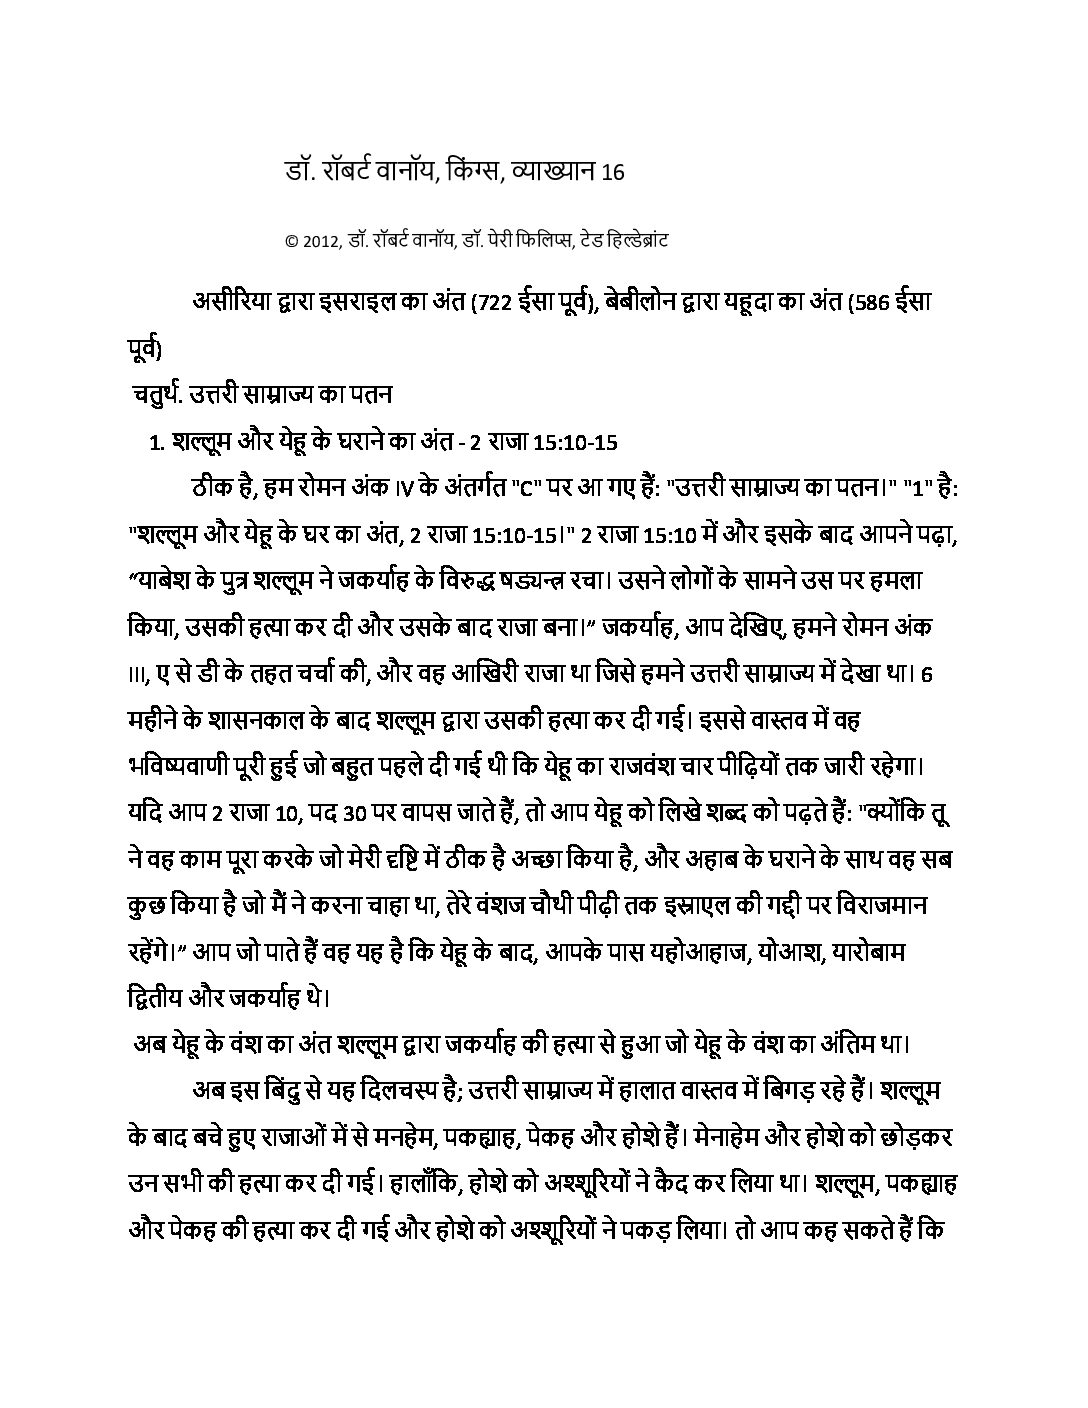 डॉ. रॉबर्ट वानॉय, किंग्स, व्याख्यान 16
© 2012, डॉ. रॉबर्ट वानॉय, डॉ. पेरी फिलिप्स, टेड हिल्डेब्रांट
असीरिया द्वारा इसराइल का अंत (722 ईसा पूर्व), बेबीलोन द्वारा यहूदा का अंत (586 ईसा
पूर्व)
चतुर्थ. उत्तरी साम्राज्य का पतन
1. शल्लूम और येहू के घराने का अंत - 2 राजा 15:10-15
ठीक है, हम रोमन अंक IV के अंतर्गत "C" पर आ गए हैं: "उत्तरी साम्राज्य का पतन।" "1" है:
"शल्लूम और येहू के घर का अंत, 2 राजा 15:10-15।" 2 राजा 15:10 में और इसके बाद आपने पढ़ा,
“याबेश के पुत्र शल्लूम ने जकर्याह के विरुद्ध षड्यन्त्र रचा। उसने लोगों के सामने उस पर हमला
किया, उसकी हत्या कर दी और उसके बाद राजा बना।” जकर्याह, आप देखिए, हमने रोमन अंक
III, ए से डी के तहत चर्चा की, और वह आखिरी राजा था जिसे हमने उत्तरी साम्राज्य में देखा था। 6
महीने के शासनकाल के बाद शल्लूम द्वारा उसकी हत्या कर दी गई। इससे वास्तव में वह
भविष्यवाणी पूरी हुई जो बहुत पहले दी गई थी कि येहू का राजवंश चार पीढ़ियों तक जारी रहेगा।
यदि आप 2 राजा 10, पद 30 पर वापस जाते हैं, तो आप येहू को लिखे शब्द को पढ़ते हैं: "क्योंकि तू
ने वह काम पूरा करके जो मेरी दृष्टि में ठीक है अच्छा किया है, और अहाब के घराने के साथ वह सब
कुछ किया है जो मैं ने करना चाहा था, तेरे वंशज चौथी पीढ़ी तक इस्राएल की गद्दी पर विराजमान
रहेंगे।” आप जो पाते हैं वह यह है कि येहू के बाद, आपके पास यहोआहाज, योआश, यारोबाम
द्वितीय और जकर्याह थे।
अब येहू के वंश का अंत शल्लूम द्वारा जकर्याह की हत्या से हुआ जो येहू के वंश का अंतिम था।
अब इस बिंदु से यह दिलचस्प है; उत्तरी साम्राज्य में हालात वास्तव में बिगड़ रहे हैं। शल्लूम
के बाद बचे हुए राजाओं में से मनहेम, पकह्याह, पेकह और होशे हैं। मेनाहेम और होशे को छोड़कर
उन सभी की हत्या कर दी गई। हालाँकि, होशे को अश्शूरियों ने कैद कर लिया था। शल्लूम, पकह्याह
और पेकह की हत्या कर दी गई और होशे को अश्शूरियों ने पकड़ लिया। तो आप कह सकते हैं कि